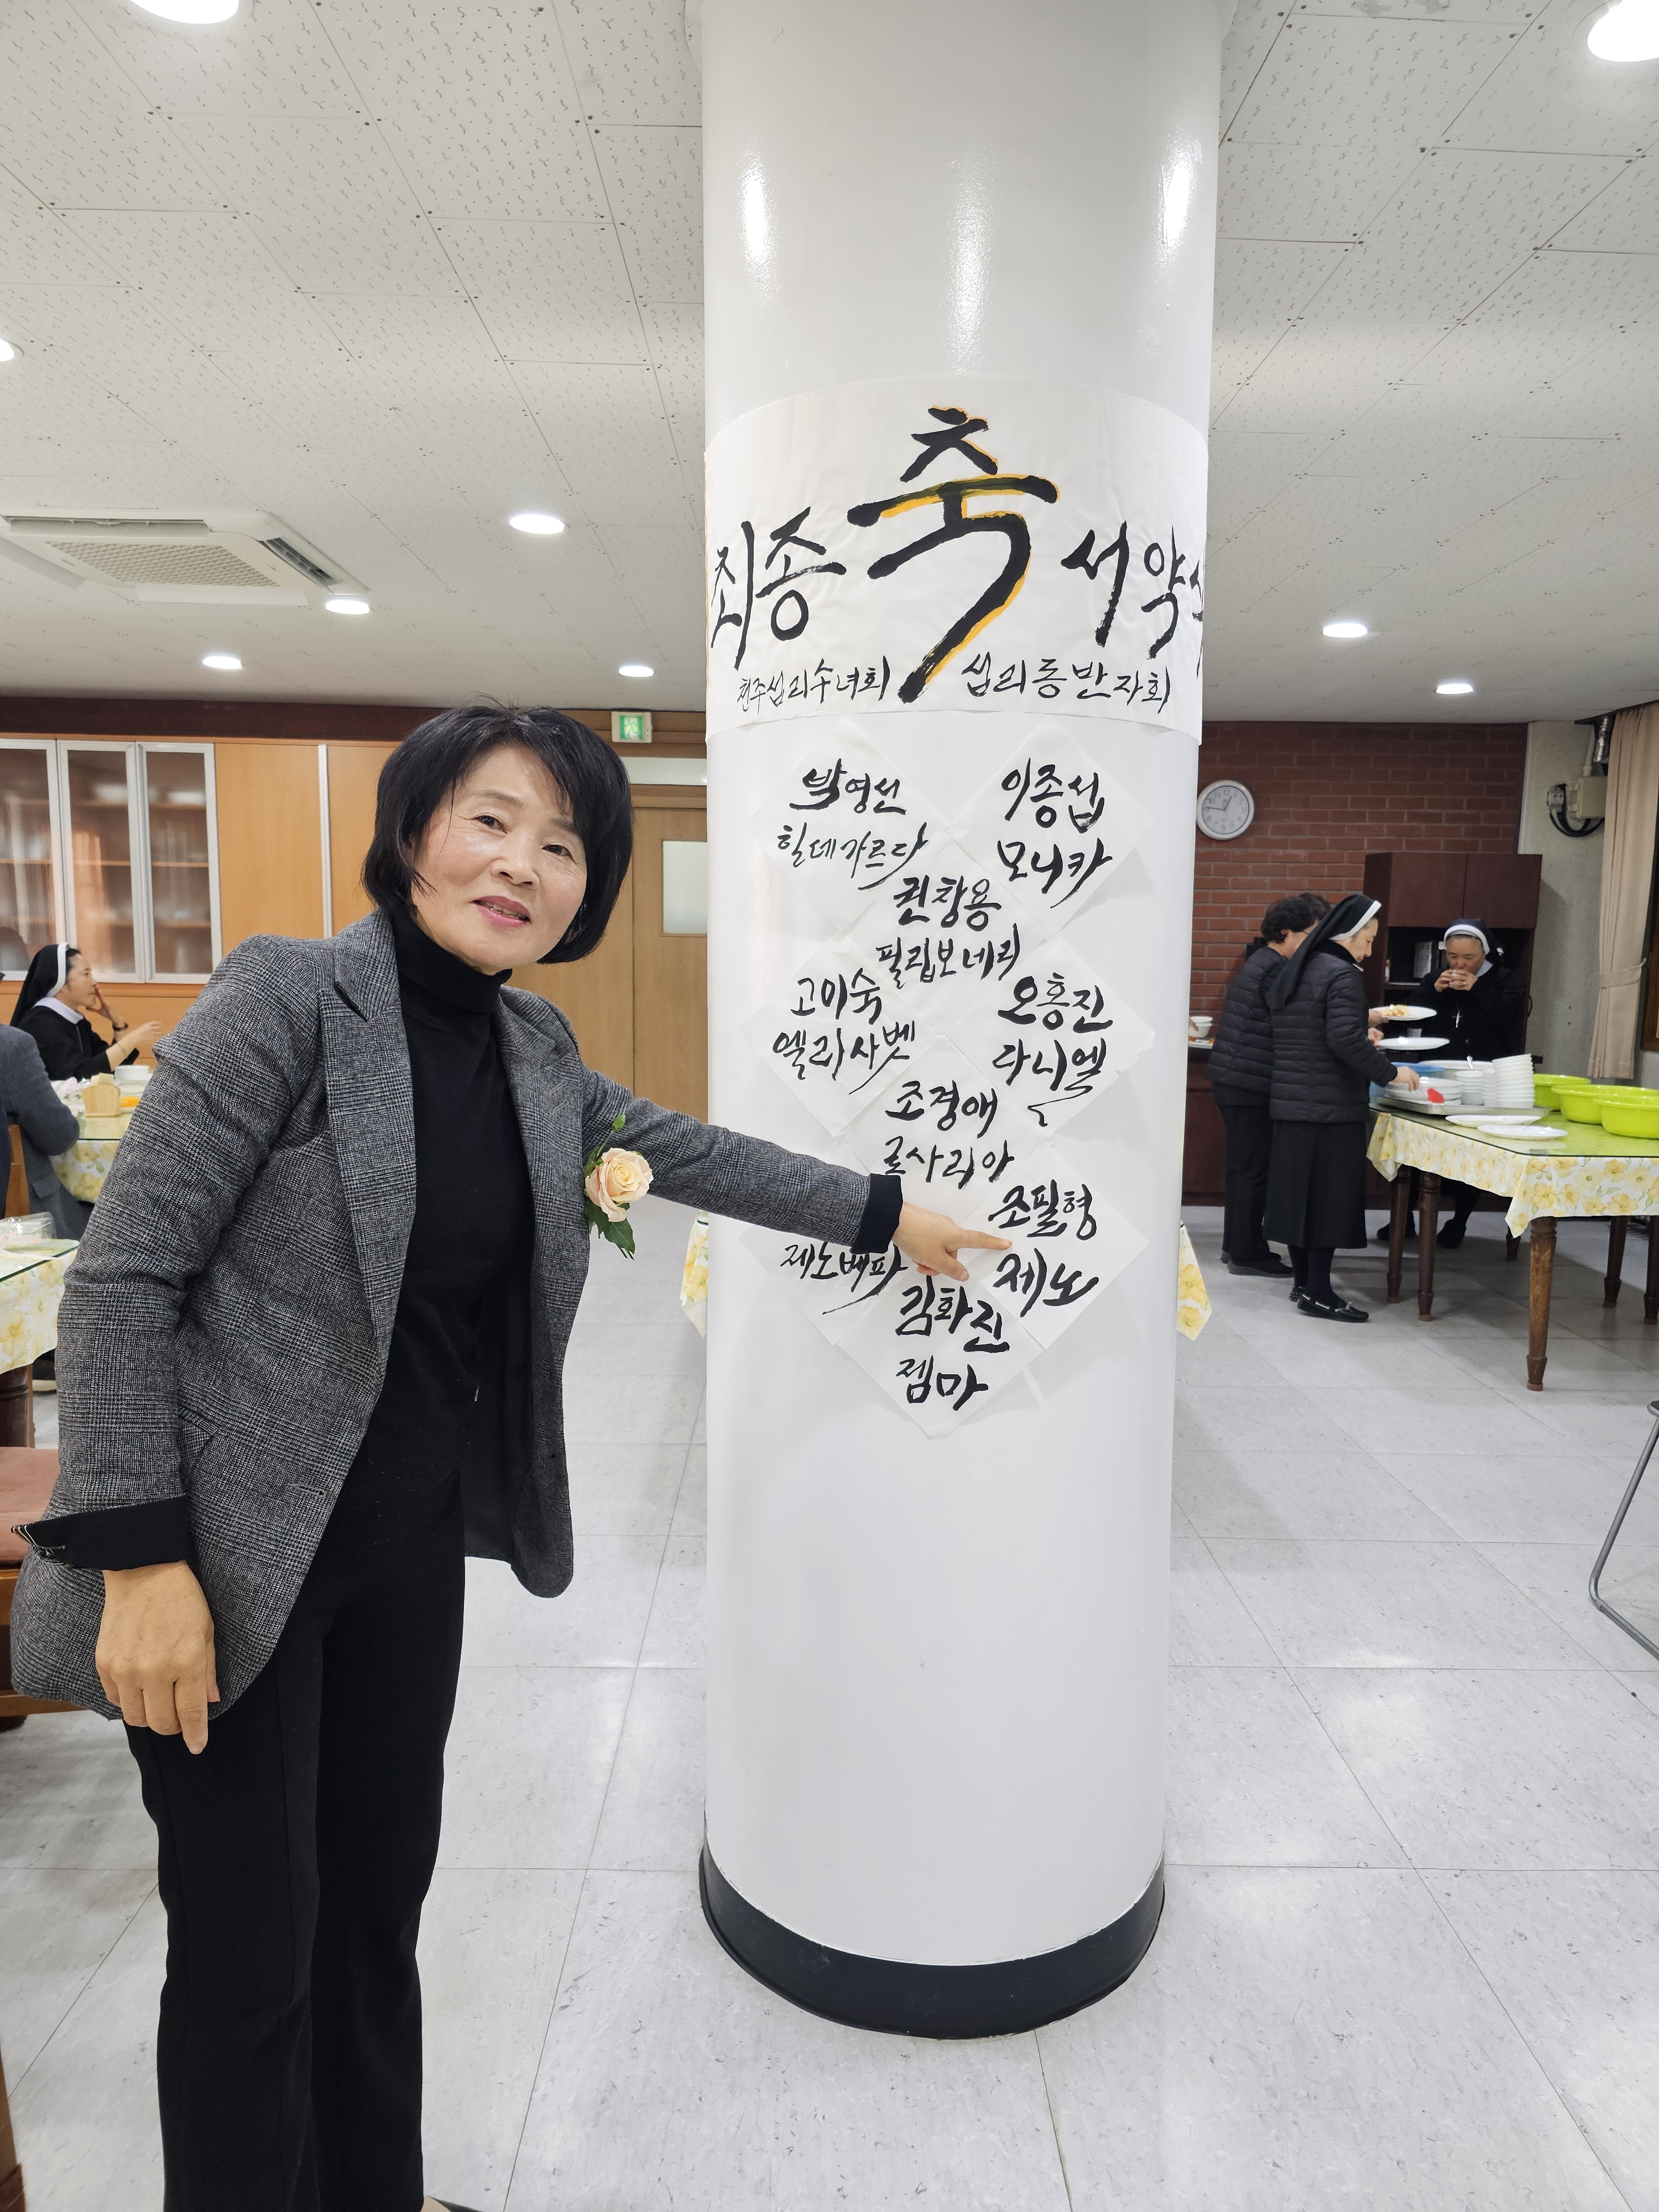 축
최종 서약식
천주섭리수녀회 섭리동반자회
박영선
힐데가르다
이종섭
모니카
권창용
필립보네리
고미숙
엘리사벳
오흥진
다니엘
조경애
로사리아
조필형
제노
제노베파
김화진
젬마